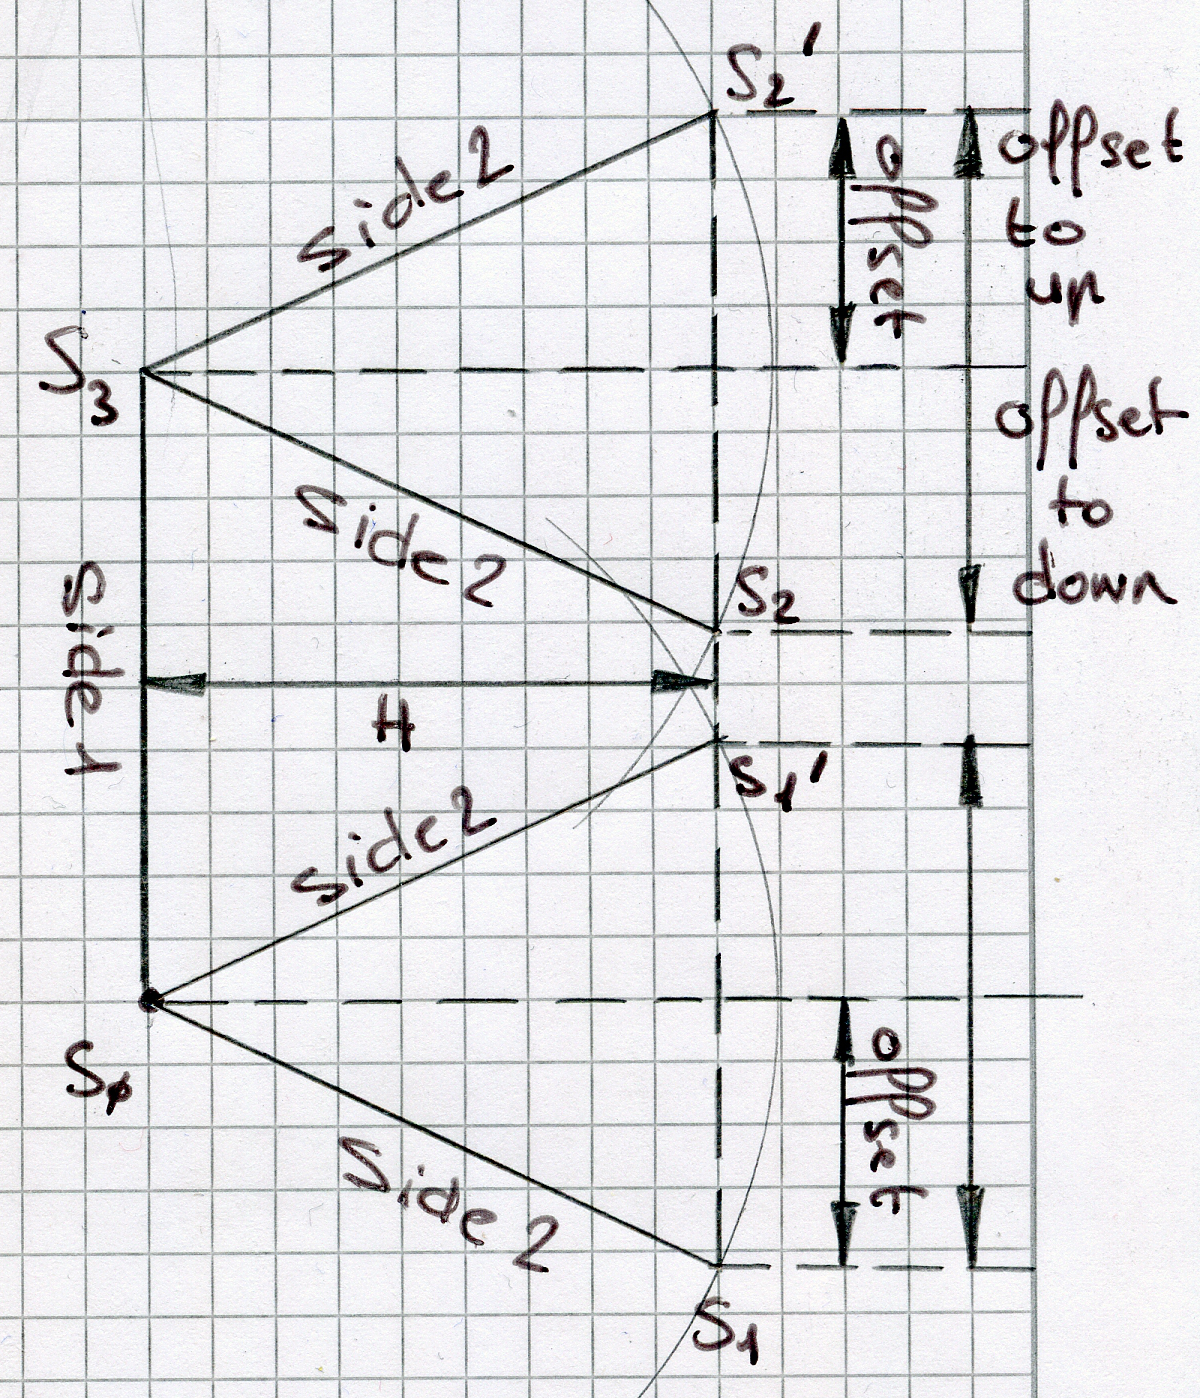 S2'
offset
to
up
side2
offset
S3
offset
to
down
side2
S2
side1
H
S1'
side2
Sø
offset
side2
S1